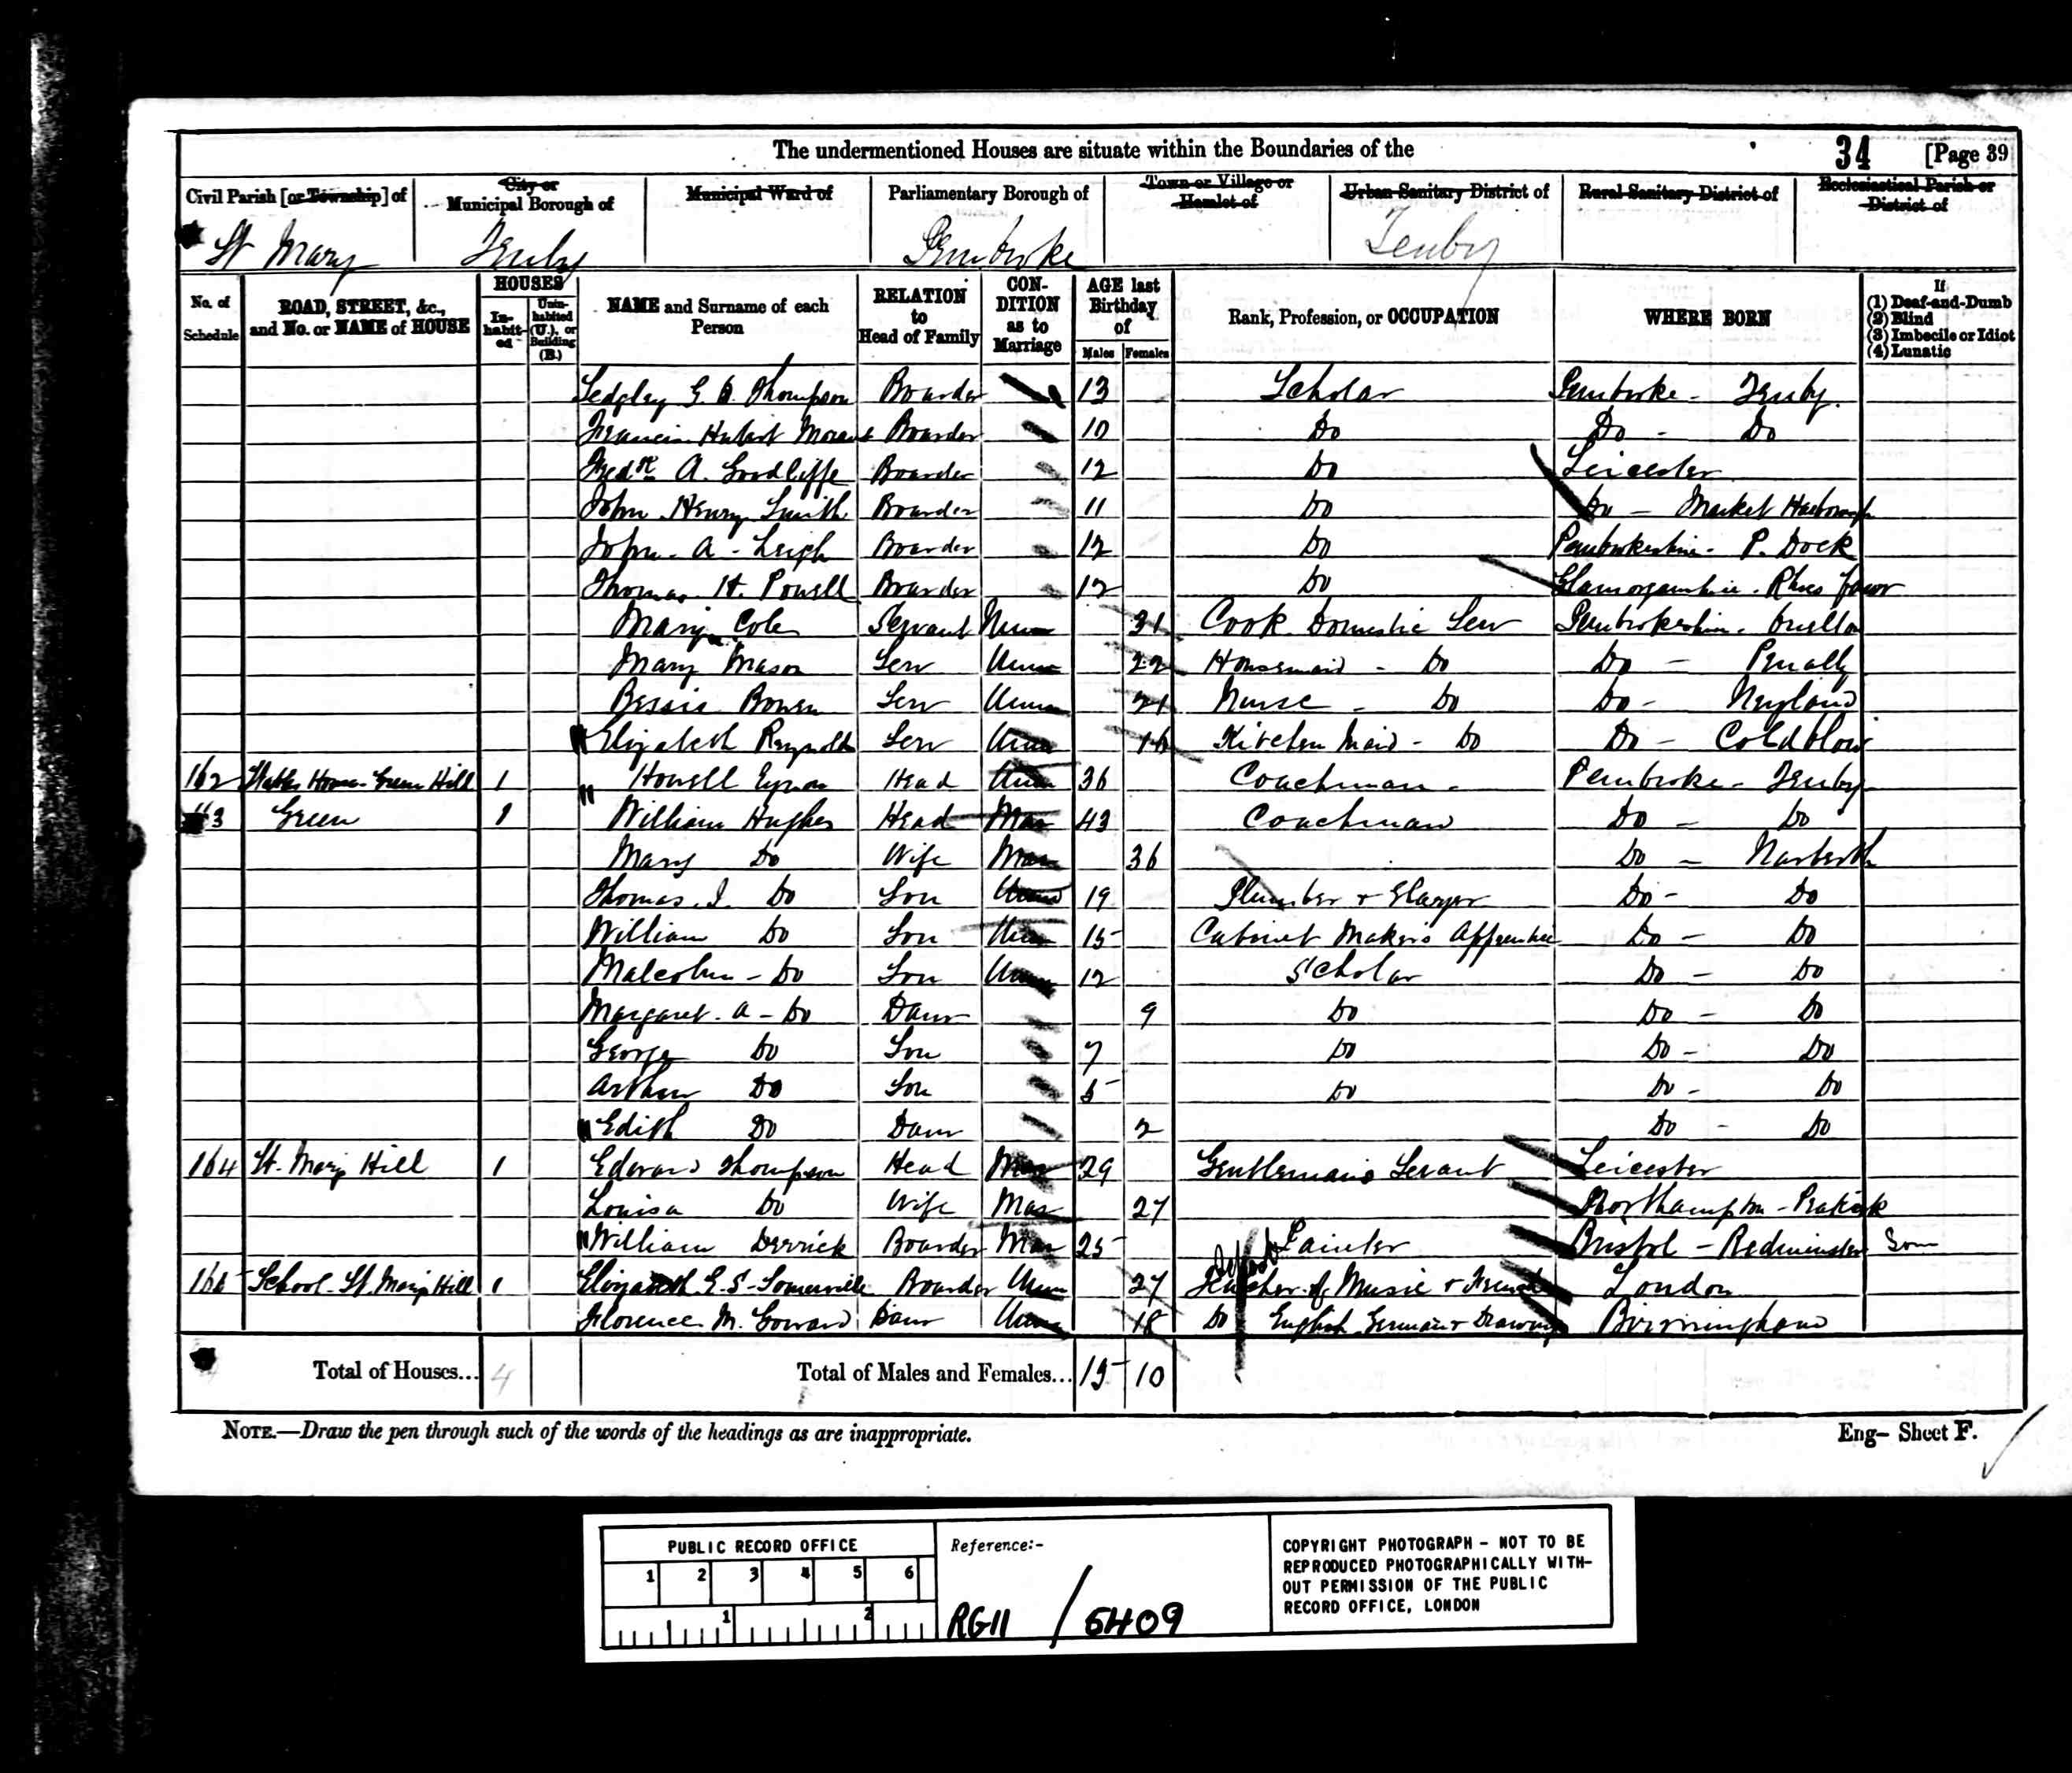 The undermentioned Houses are situate within the Boundaries of the
34 [Page 39
Civil Parish [or Township] of
City or Municipal Borough of
Municipal Ward of
Parliamentary Borough of
Town or Village or Hamlet of
Urban Sanitary District of
Rural Sanitary District of
Ecclesiastical Parish or District of
St Mary Tenby Pembroke Tenby
No. of Schedule
ROAD, STREET, &c., and No. or NAME of HOUSE
HOUSES
In-habit-ed
Unin-habited (U.), or Building (B.)
NAME and Surname of each Person
RELATION to Head of Family
CON-DITION as to Marriage
AGE last Birthday of
Males Females
Rank, Profession, or OCCUPATION
WHERE BORN
If
(1) Deaf-and-Dumb
(2) Blind
(3) Imbecile or Idiot
(4) Lunatic
Sedgley G. B. Thompson Boarder 13 Scholar Pembroke - Tenby.
Francis Hubert Boarder 10 Do Do - Do
Fredk A. Goodliffe Boarder 12 Do Leicester
John Henry Smith Boarder 11 Do Do - Market Harborough
John - A - Leigh Boarder 12 Do Pembrokeshire - P. Dock
Thomas H. Powell Boarder 12 Do Glamorganshire -
Mary Cole Servant Unm 31 Cook Domestic Serv Pembrokeshire -
Mary Mason Serv Unm 22 Housemaid - Do Do - Penally
Bessie Bowen Serv Unm 21 Nurse - Do Do - Neyland
Elizabeth Reynolds Serv Unm 16 Kitchen Maid - Do Do - Coldblow
162 House - Green Hill 1 Howell Head Unm 36 Coachman - Pembroke - Tenby
163 Green 1 William Hughes Head Mar 43 Coachman Do - Do
Mary Do Wife Mar 36 Do - Narberth
Thomas. J. Do Son Unm 19 Plumber + Glazier Do - Do
William Do Son Unm 15 Cabinet Makers Apprentice Do - Do
Malcolm - Do Son Unm 12 Scholar Do - Do
Margaret. A - Do Daur 9 Do Do - Do
George Do Son 7 Do Do - Do
Arthur Do Son 5 Do Do - Do
Edith Do Daur 2 Do - Do
164 St. Marys Hill 1 Edward Thompson Head Mar 29 Gentlemans Servant Leicester
Louisa Do Wife Mar 27 Northampton -
William Derrick Boarder Mar 25 Painter Bristol - Bedminster Som
165 School - St. Marys Hill 1 Elizabeth E. S - Somerville Boarder Unm 27 Teacher of Music + French London
Florence M. Goward Daur Unm 18 Do English German + Drawing Birmingham
Total of Houses... 4
Total of Males and Females... 15 10
NOTE.—Draw the pen through such of the words of the headings as are inappropriate.
Eng– Sheet F.
PUBLIC RECORD OFFICE
1 2 3 4 5 6
1 2
Reference:-
RG11 / 5409
COPYRIGHT PHOTOGRAPH – NOT TO BE
REPRODUCED PHOTOGRAPHICALLY WITH-
OUT PERMISSION OF THE PUBLIC
RECORD OFFICE, LONDON